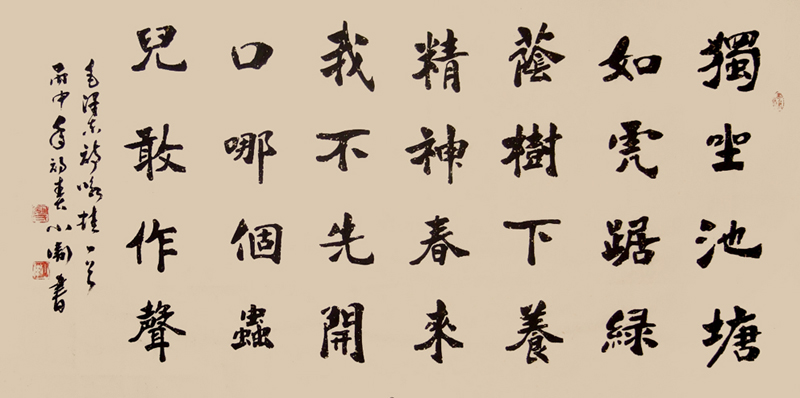 獨坐池塘
如虎踞綠
蔭樹下養
精神春來
我不先開
口哪個蟲
兒敢作聲
毛澤东詩咏蛙一首
丙申年初春小書